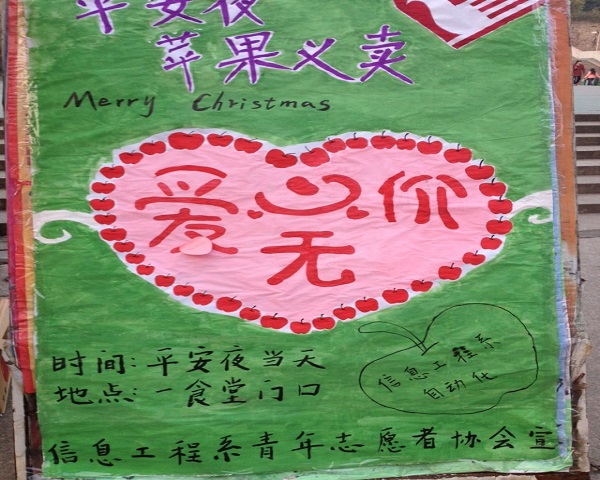 平安夜
苹果义卖
Merry Christmas
爱心价
无
时间:平安夜当天
地点:一食堂门口
信息工程系
自动化
信息工程系青年志愿者协会宣